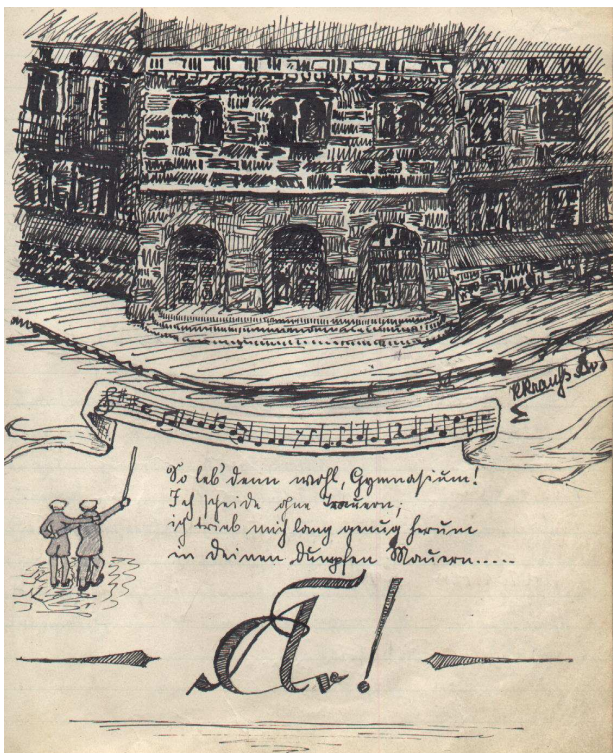 K Krauss
So leb' denn wohl, Gymnasium!
Ich scheide ohne Trauern;
ich trieb mich lang genug herum
in deinen dumpfen Mauern.....